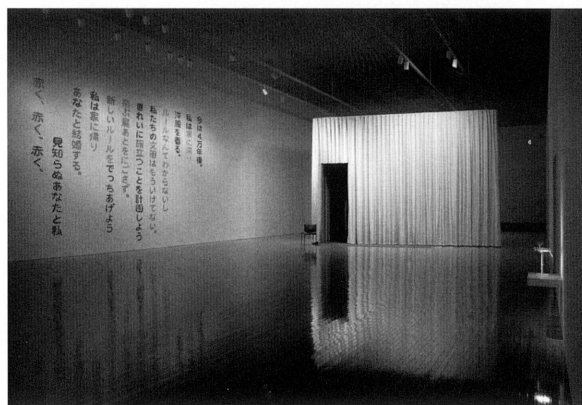 今は4万年後。
私は家に帰り
洋服を着る。
ルールなんてわからないし
私たちの文明はもういけてない。
きれいに旅立つことを計画しよう
飛ぶ鳥あとをにごさず。
新しいルールをでっちあげよう
私は家に帰り
あなたと結婚する。
見知らぬあなたと私
赤く、赤く、赤く、